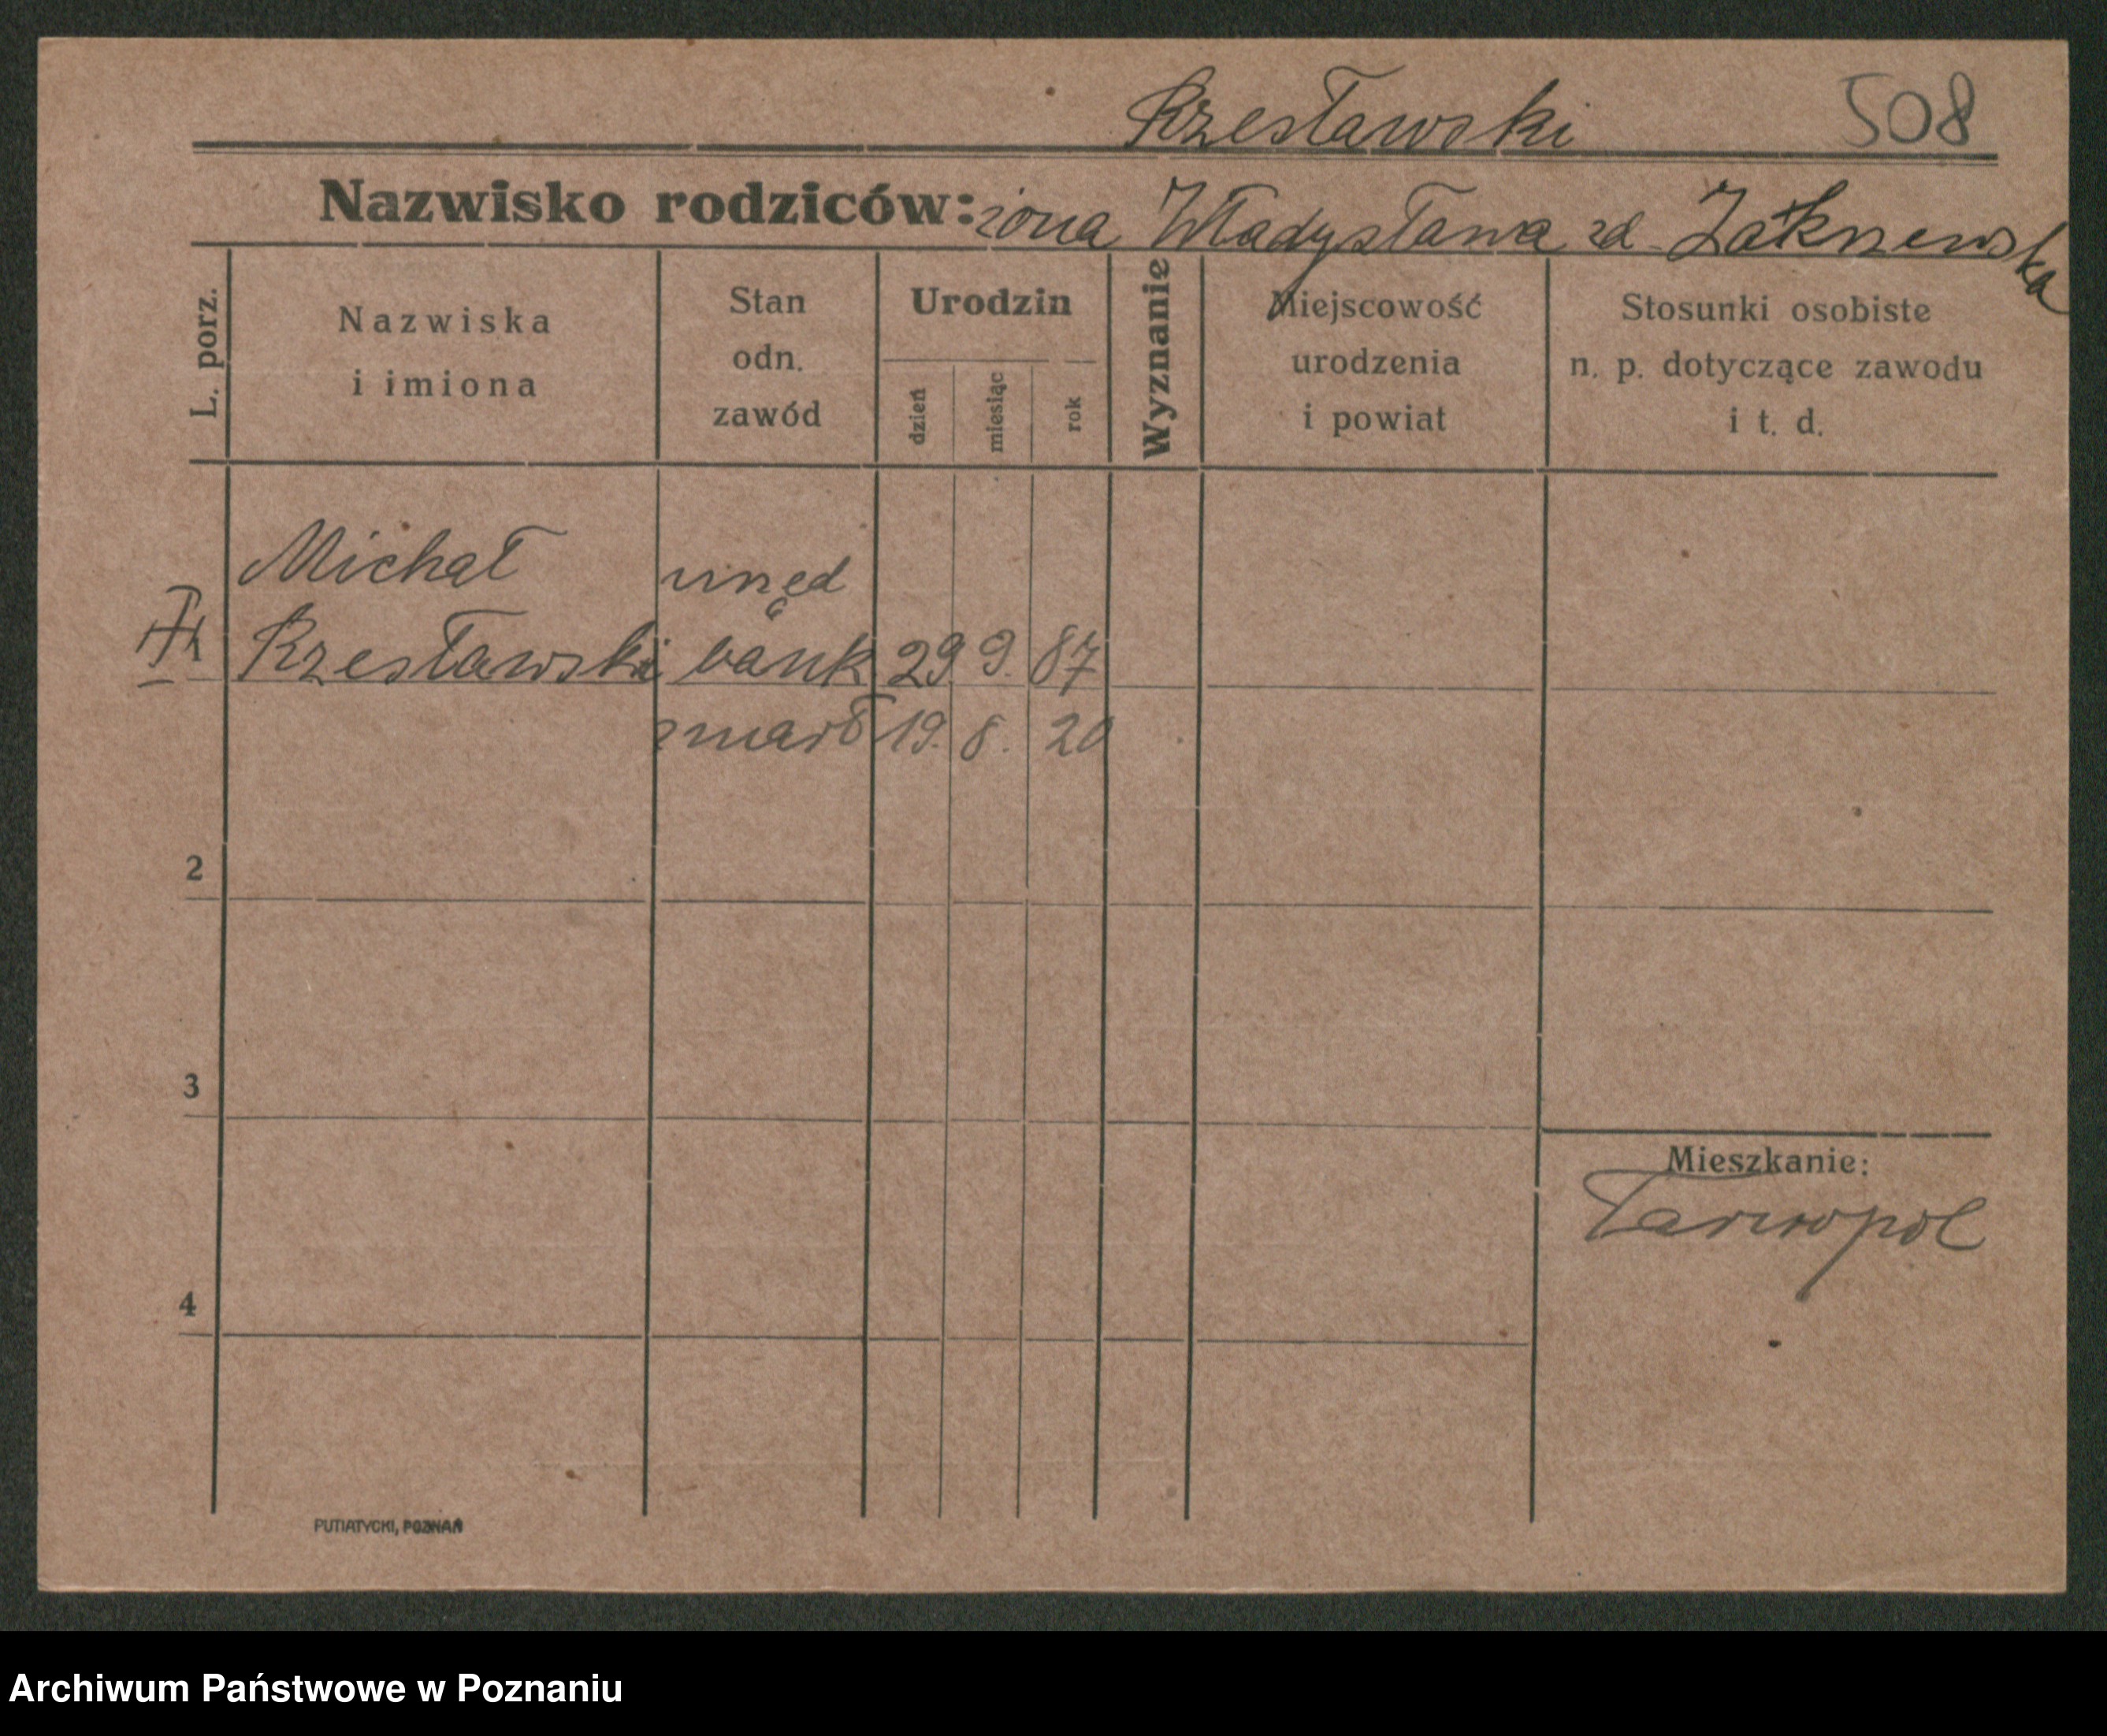 Rzesławski 508
Nazwisko rodziców: żona Władysława zd. Zakrzewska
L. porz.
Nazwiska
i imiona
Stan
odn.
zawód
Urodzin
dzień
miesiąc
rok
Wyznanie
Miejscowość
urodzenia
i powiat
Stosunki osobiste
n. p. dotyczące zawodu
i t. d.
Michał urzęd
Rzesławski bank 29 9. 87
zmarł 19. 8. 20
2
3
Mieszkanie:
Tarnopol
4
PUTIATYCKI, POZNAŃ
Archiwum Państwowe w Poznaniu